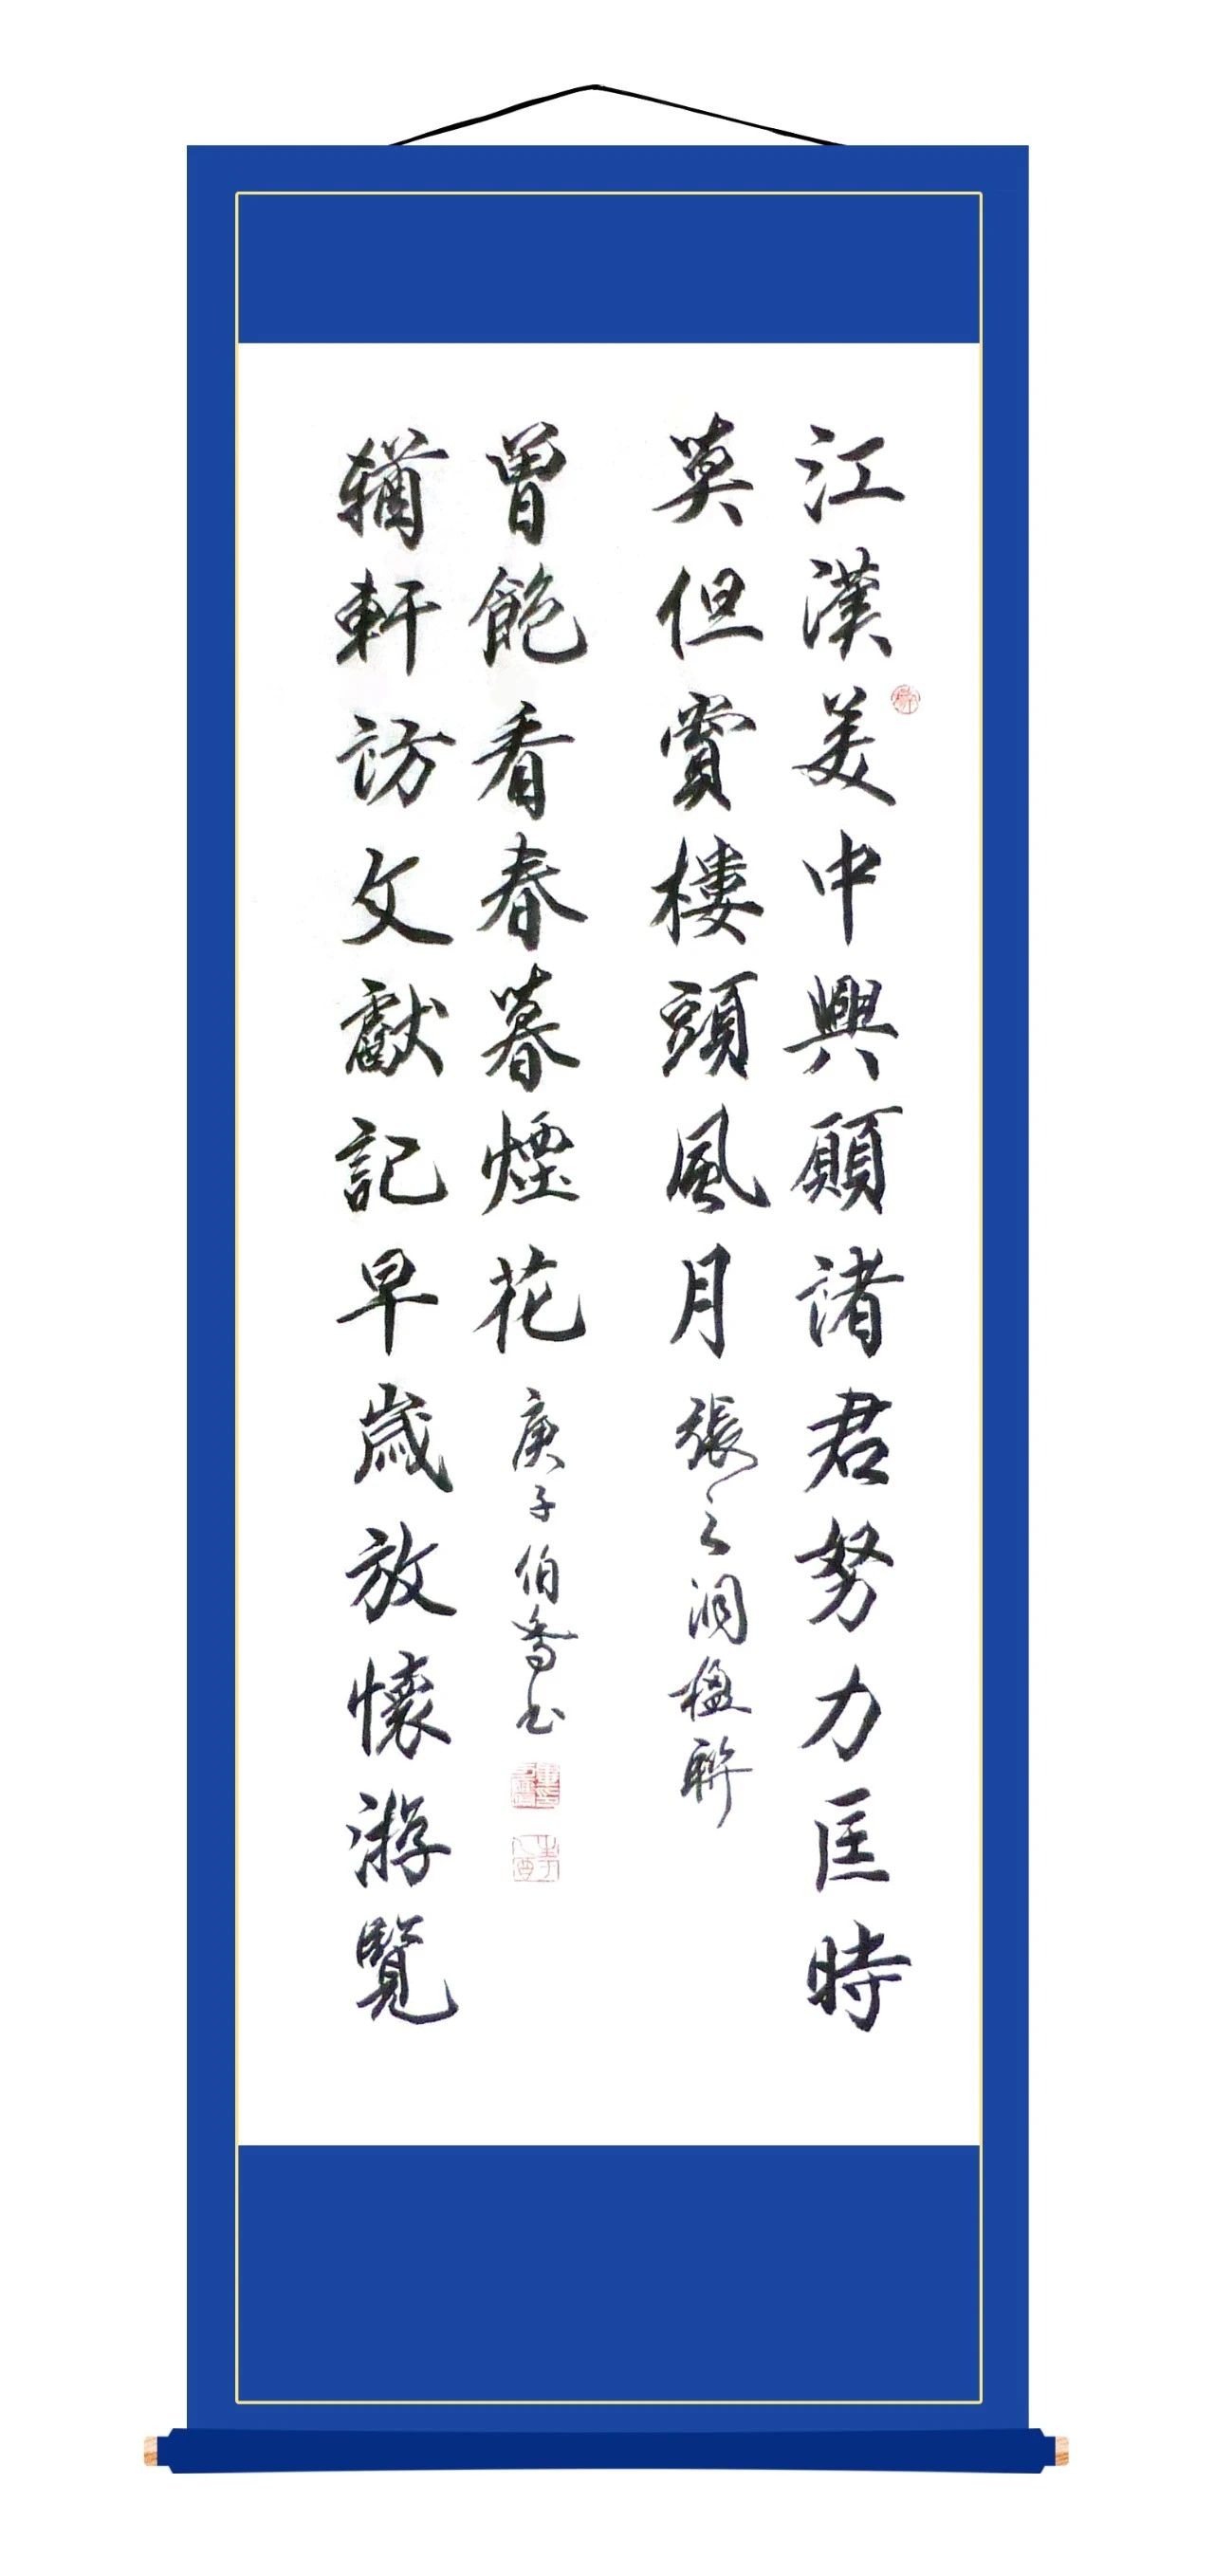 江漢美中興願諸君努力匡時
莫但賞樓頭風月
張之洞楹聯
輶軒訪文獻記早歲放懷游覽
曾飽看春暮煙花
庚子伯喬书